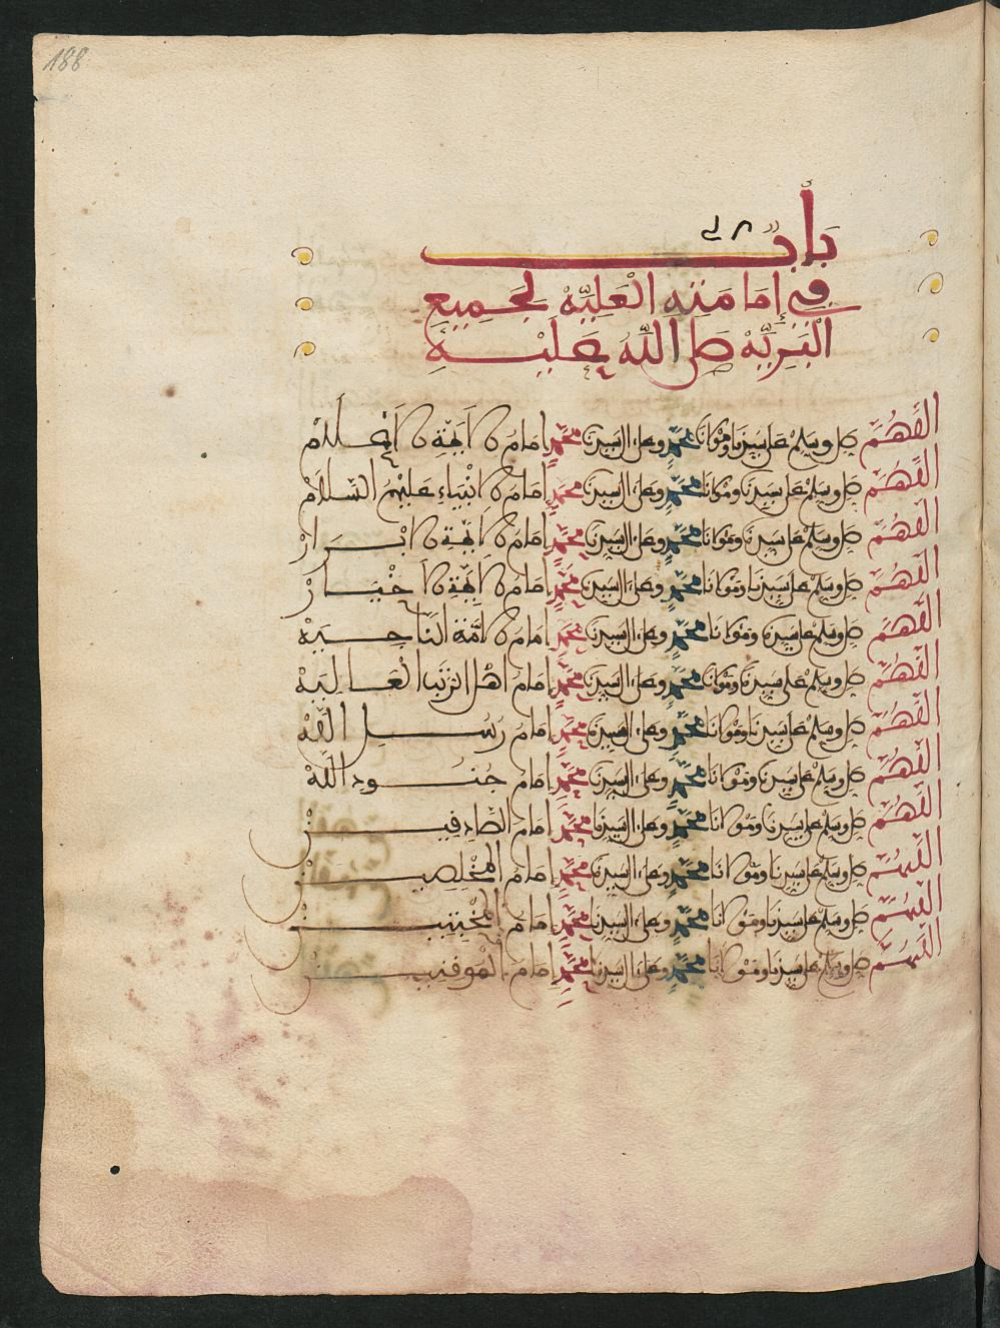 188
باب
في إمامته العلية لجميع
البرية صل الله عليه
اللهم صل وسلم على سيدنا ومولانا محمد وعلى ال سيدنا محمد امام الائمة الاعلام
اللهم صل وسلم على سيدنا ومولانا محمد وعلى ال سيدنا محمد امام الانبياء عليهم السلام
اللهم صل وسلم على سيدنا ومولانا محمد وعلى ال سيدنا محمد امام الائمة الابرار
اللهم صل وسلم على سيدنا ومولانا محمد وعلى ال سيدنا محمد امام الائمة الاخيار
اللهم صل وسلم على سيدنا ومولانا محمد وعلى ال سيدنا محمد امام الامة الناجيه
اللهم صل وسلم على سيدنا ومولانا محمد وعلى ال سيدنا محمد امام اهل الرتب العاليه
اللهم صل وسلم على سيدنا ومولانا محمد وعلى ال سيدنا محمد امام رسل الله
اللهم صل وسلم على سيدنا ومولانا محمد وعلى ال سيدنا محمد امام جنود الله
اللهم صل وسلم على سيدنا ومولانا محمد وعلى ال سيدنا محمد امام الصادقين
اللهم صل وسلم على سيدنا ومولانا محمد وعلى ال سيدنا محمد امام المخلصين
اللهم صل وسلم على سيدنا ومولانا محمد وعلى ال سيدنا محمد امام المخبتين
اللهم صل وسلم على سيدنا ومولانا محمد وعلى ال سيدنا محمد امام الموقنين